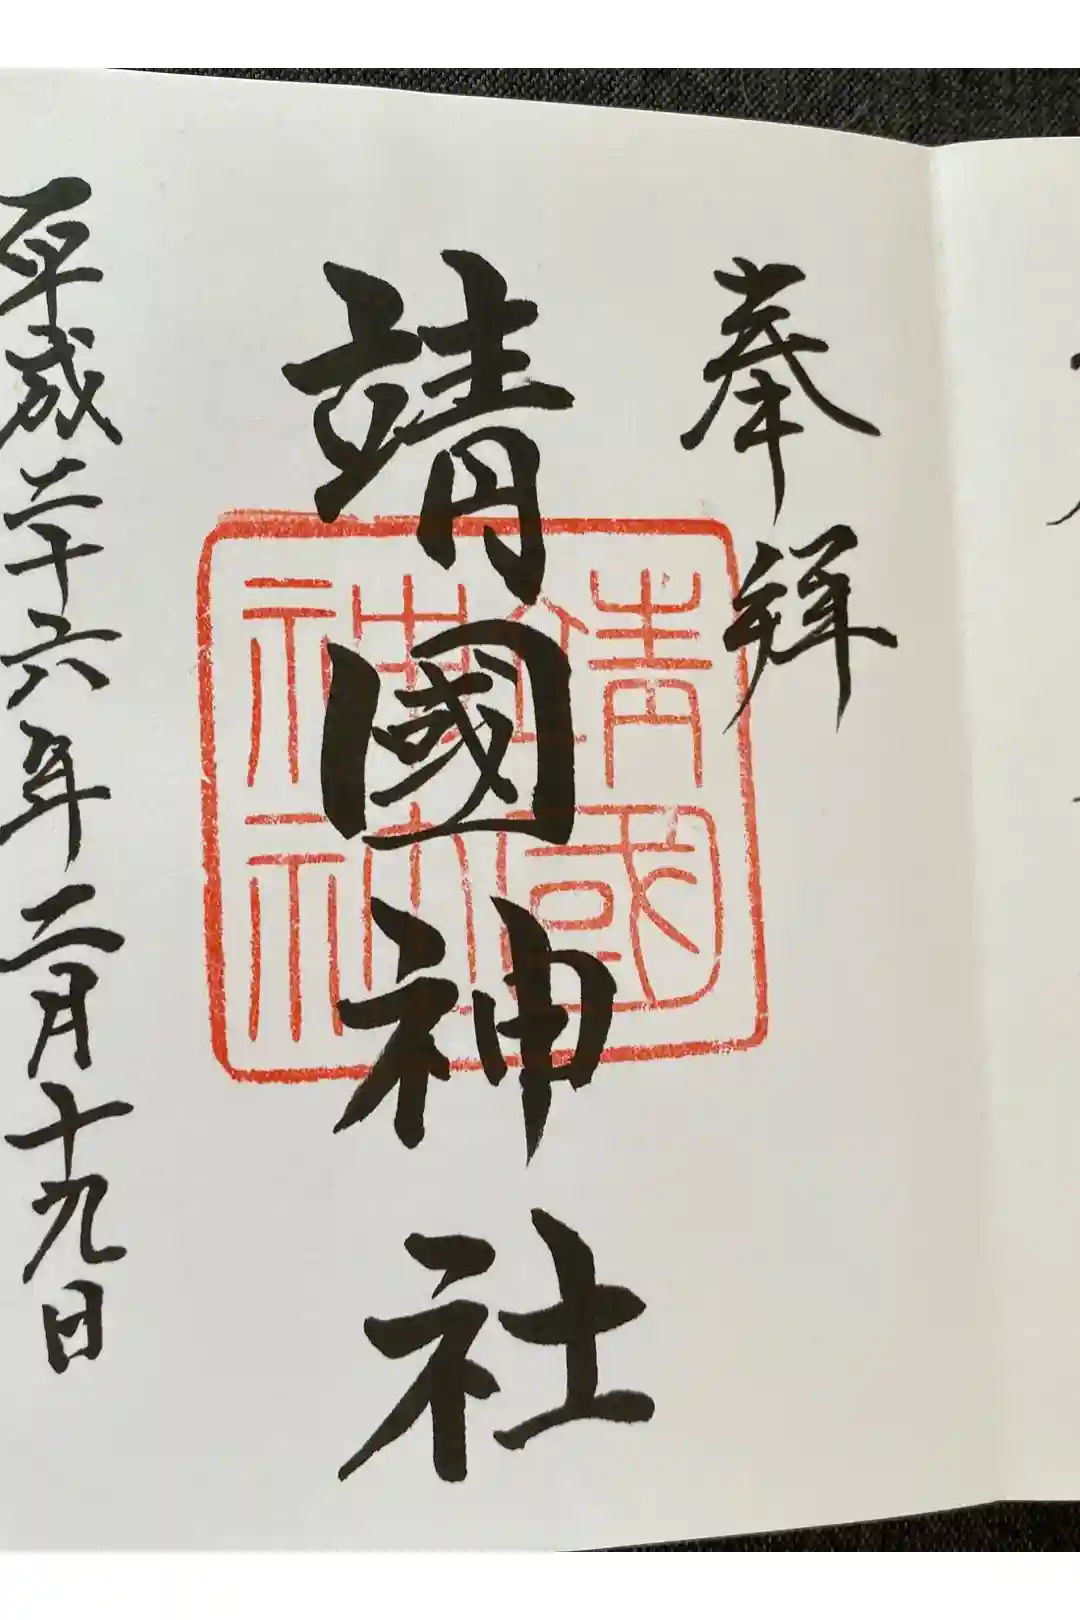 奉拝
靖國神社
靖國神社
平成二十六年二月十九日